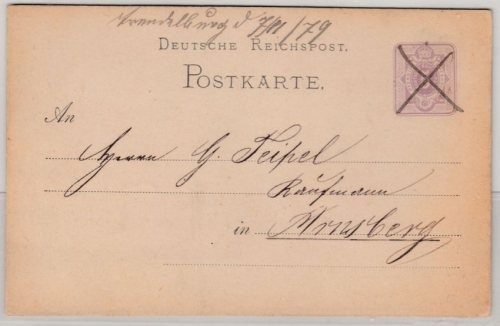 Trendelburg d 7/11/79
DEUTSCHE REICHSPOST.
POSTKARTE.
An
Herrn G. Teipel
Kaufmann
in Arnsberg